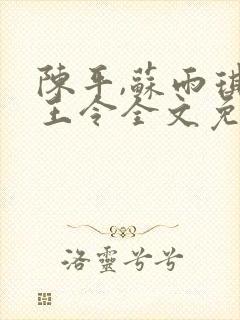 陳平,蘇雨琪
王令全文免
洛靈兮兮